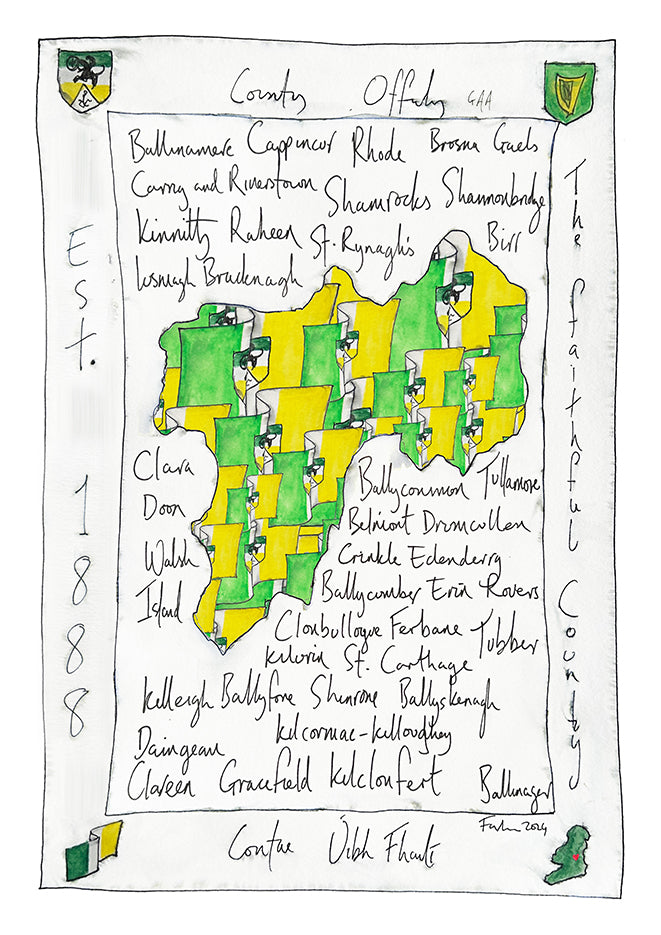 County Offaly GAA
Ballinamere Cappincur Rhode Brosna Gaels
Carrig and Riverstown Shamrocks Shannonbridge
Kinnitty Raheen St. Rynagh's Birr
Lusmagh Bracknagh
Est. 1888
The Faithful County
Clara
Doon
Walsh
Island
Ballycommon Tullamore
Belmont Drumcullen
Crinkle Edenderry
Ballycumber Erin Rovers
Clonbullogue Ferbane Tubber
Kilurin St. Carthage
Killeigh Ballyfore Shinrone Ballyskenagh
Daingean Kilcormac-Killoughey
Clareen Gracefield Kilclonfert Ballinagar
2024
Contae Uíbh Fhailí